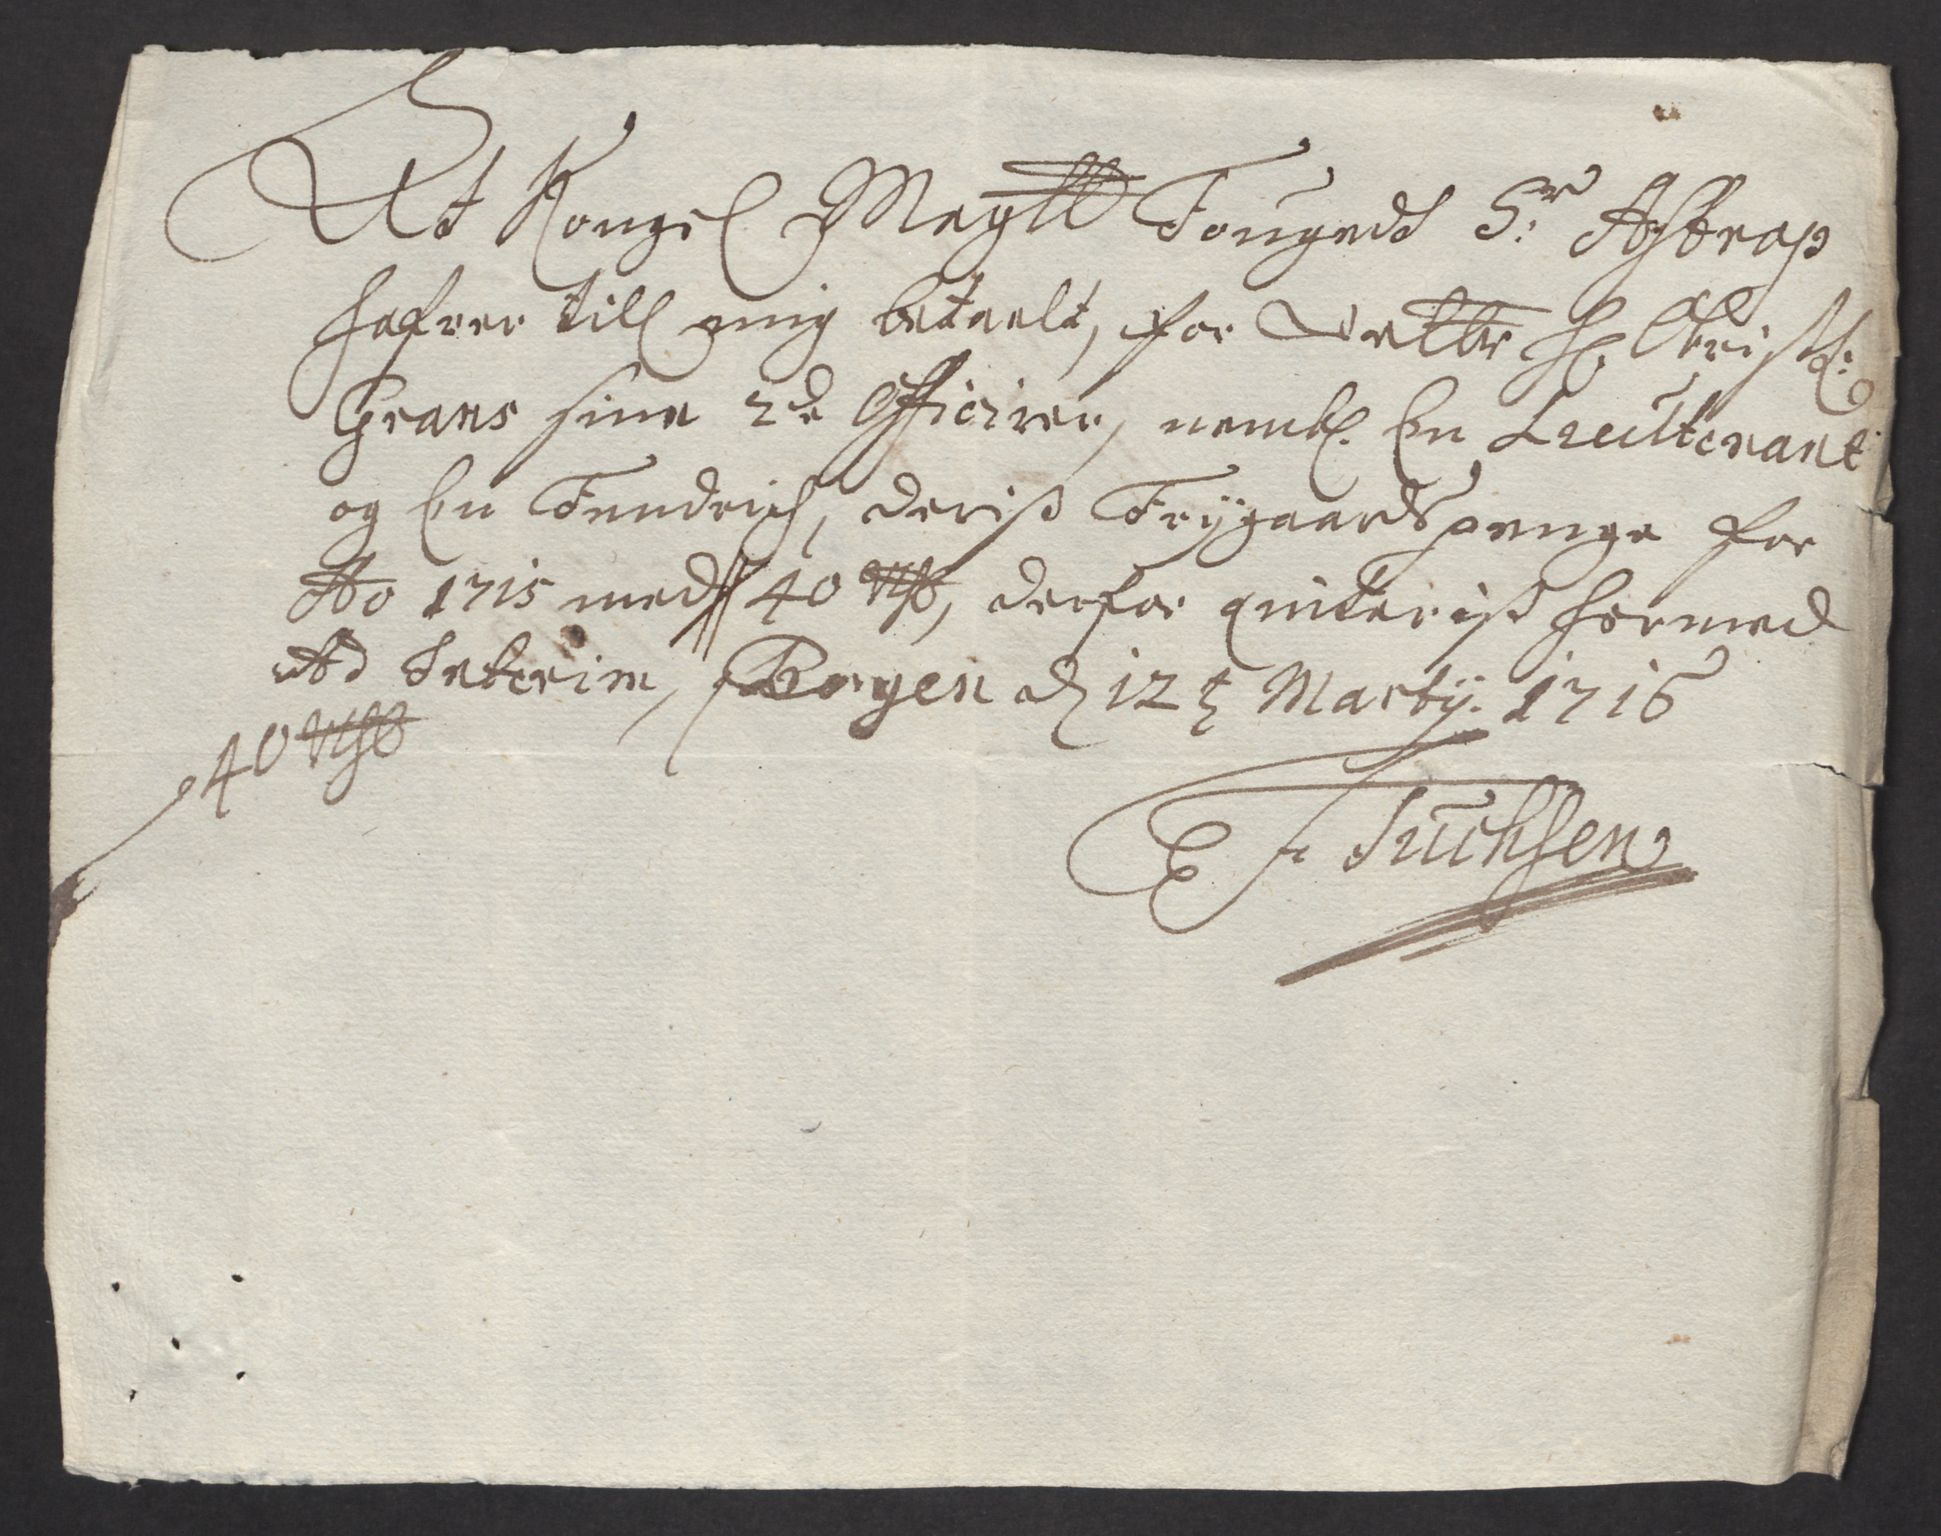 At Kongel Maytts Fougedt Sr. Astrup
hafver till mig betaelt, for Rettr H. Christ:
Grans sine 2de Officirer, nemlf. En Lieutenant
og En Fendrich, deris Frygaards penge for
Ao 1715 med 40 Rdr, derfor qviteris hermed
Ad Interim, Bergen d 12t Marty. 1716
40 Rdr
E F Tuchsen